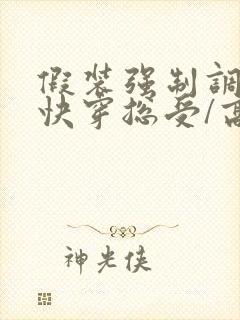 假装强制調
快穿総受/高
神光侠